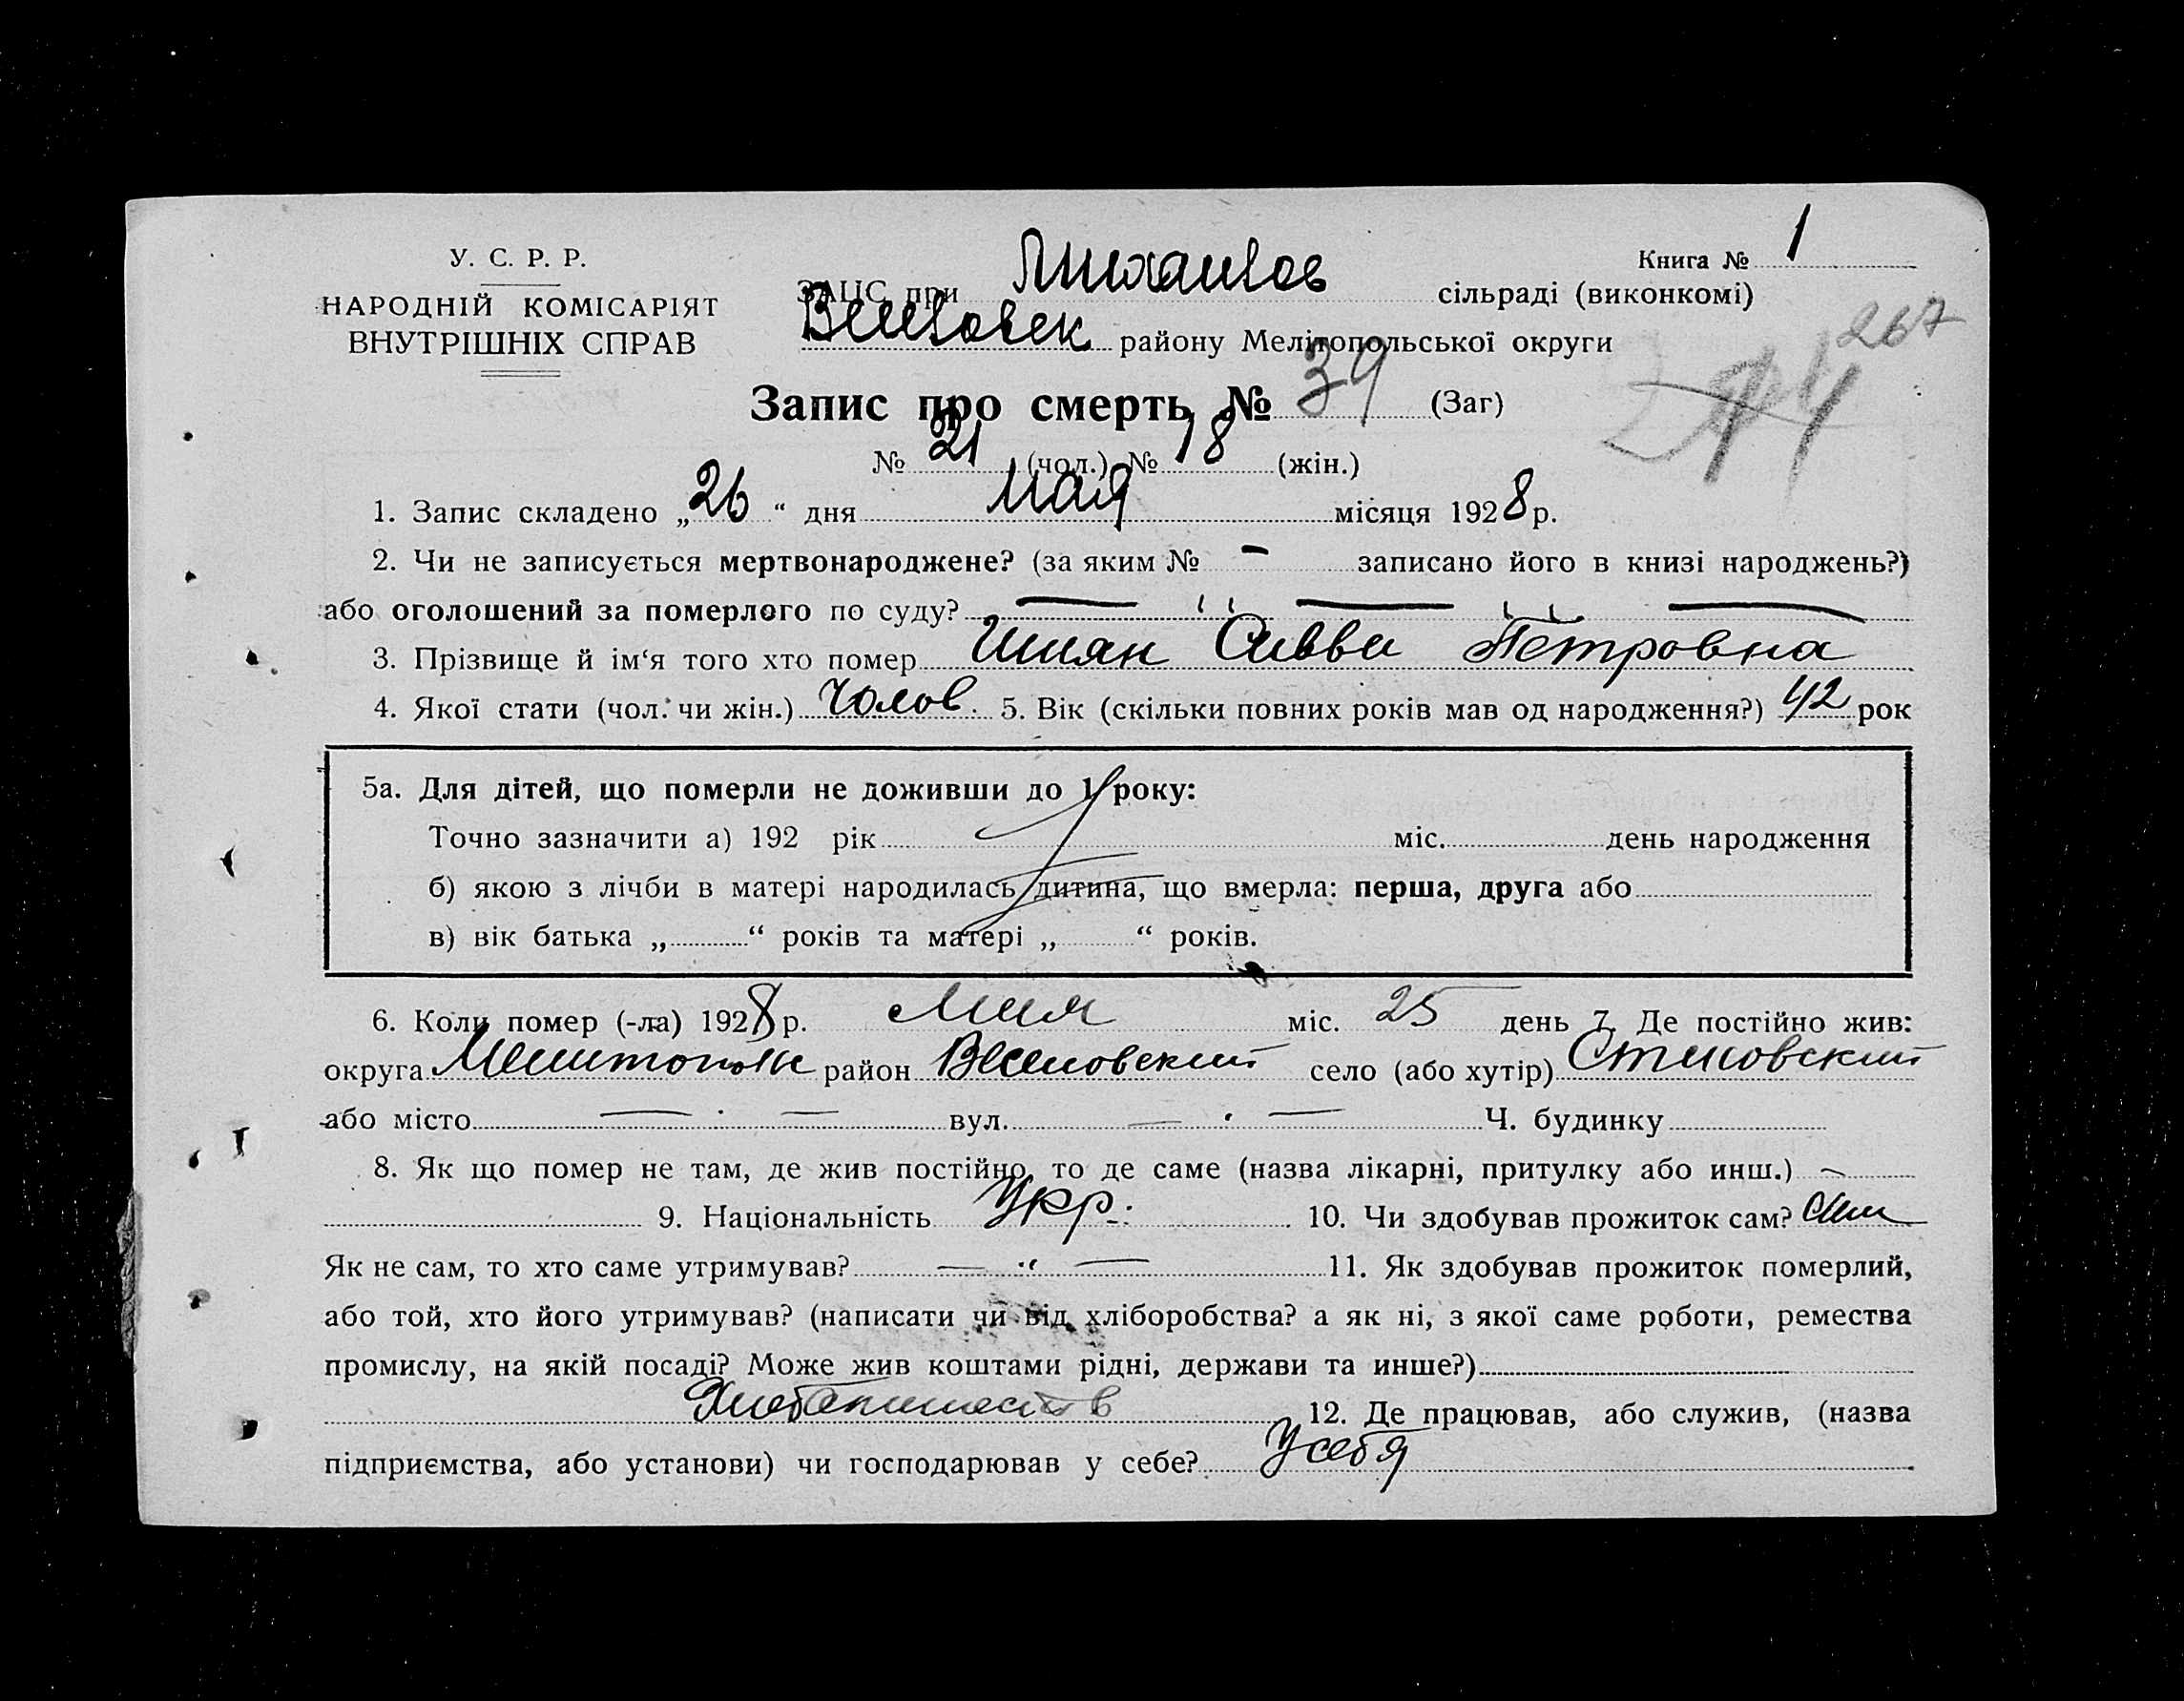 У. С. Р. Р.
НАРОДНІЙ КОМІСАРІЯТ
ВНУТРІШНІХ СПРАВ
Книга № 1
ЗАЦС при сільраді (виконкомі)
району Мелітопольської округи
267
Запис про смерть № 39 (Заг)
№ 21 (чол.) № 18 (жін.)
1. Запис складено „26“ дня мая місяця 1928 р.
2. Чи не записується мертвонароджене? (за яким № – записано його в книзі народжень?)
або оголошений за померлого по суду? — " — " —
3. Прізвище й ім‘я того хто помер Петровна
4. Якої стати (чол. чи жін.) Чолов. 5. Вік (скільки повних років мав од народження?) 42 рок
5а. Для дітей, що померли не доживши до 1 року:
Точно зазначити а) 192 рік міс. день народження
б) якою з лічби в матері народилась дитина, що вмерла: перша, друга або
в) вік батька „ “ років та матері „ “ років.
6. Коли помер (-ла) 1928 р. Мая міс. 25 день 7. Де постійно жив:
округа район Веселовский село (або хутір)
або місто — · — вул. — · — Ч. будинку
8. Як що помер не там, де жив постійно, то де саме (назва лікарні, притулку або инш.) –
9. Національність Укр. 10. Чи здобував прожиток сам? Сам
Як не сам, то хто саме утримував? — " — 11. Як здобував прожиток померлий,
або той, хто його утримував? (написати чи від хліборобства? а як ні, з якої саме роботи, ремества
промислу, на якій посаді? Може жив коштами рідні, держави та инше?)
12. Де працював, або служив, (назва
підприємства, або установи) чи господарював у себе? У себя